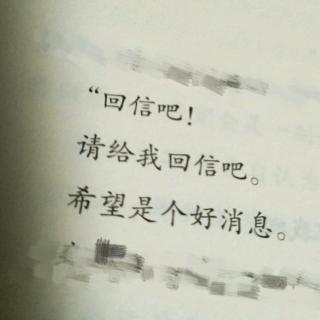 “回信吧！
请给我回信吧。
希望是个好消息。